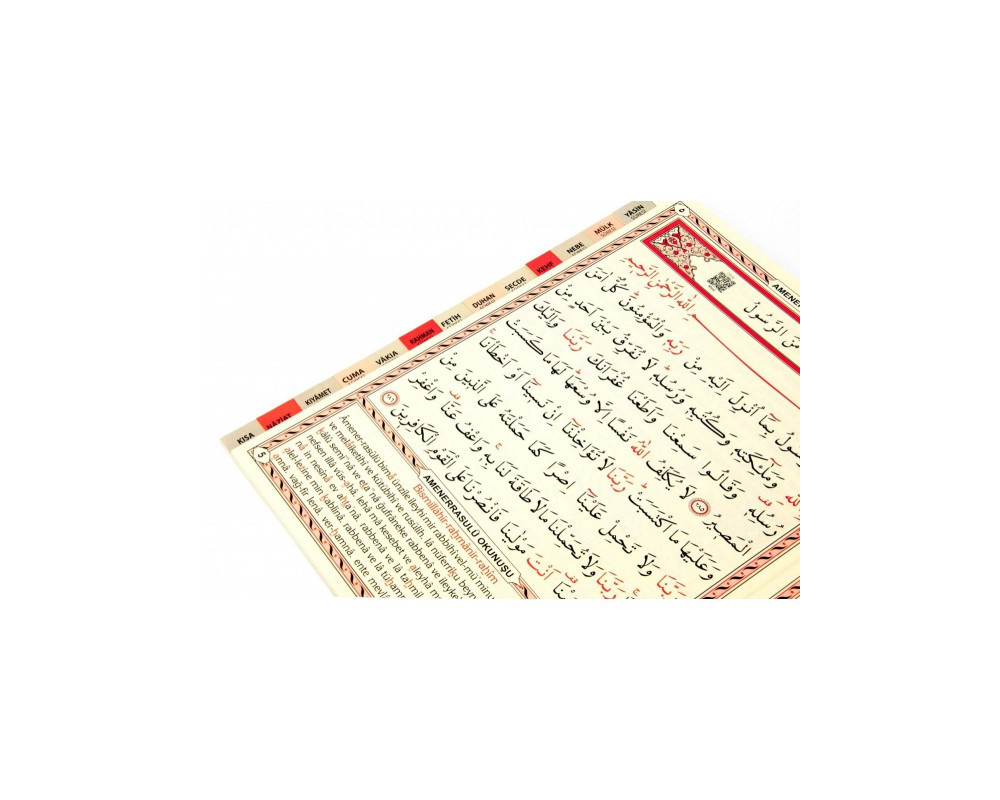 YÂSİN
SÛRESİ
MÜLK
SÛRESİ
NEBE
KEHF
SECDE
DUHAN
FETİH
RAHMAN
VÂKIA
CUMA
KIYÂMET
NÂZİAT
KISA
٥
مَنَ الرَّسُولُ
الله الرَّحْمٰنِ الرَّحِيمِ
سُولُ بِمَٓا اُنْزِلَ اِلَيْهِ مِنْ رَبِّهٖ وَالْمُؤْمِنُونَۜ كُلٌّ اٰمَنَ
للّٰهِ وَمَلٰٓئِكَتِهٖ وَكُتُبِهٖ وَرُسُلِهٖۜ لَا نُفَرِّقُ بَيْنَ اَحَدٍ مِنْ
رُسُلِهٖ۠ وَقَالُوا سَمِعْنَا وَاَطَعْنَا غُفْرَانَكَ رَبَّنَا وَاِلَيْكَ
الْمَصٖيرُ ﴿٢٨٥﴾ لَا يُكَلِّفُ اللّٰهُ نَفْسًا اِلَّا وُسْعَهَاۜ لَهَا مَا كَسَبَتْ
وَعَلَيْهَا مَا اكْتَسَبَتْۜ رَبَّنَا لَا تُؤَاخِذْنَٓا اِنْ نَسٖينَٓا اَوْ اَخْطَأْنَاۚ
رَبَّنَا وَلَا تَحْمِلْ عَلَيْنَٓا اِصْرًا كَمَا حَمَلْتَهُ عَلَى الَّذٖينَ مِنْ
رَبَّنَا وَلَا تُحَمِّلْنَا مَا لَا طَاقَةَ لَنَا بِهٖۚ وَاعْفُ عَنَّا۠ وَاغْفِرْ
اَنْتَ مَوْلٰينَا فَانْصُرْنَا عَلَى الْقَوْمِ الْكَافِرٖينَ ﴿٢٨٦﴾
AMENERRASULÜ OKUNUŞU
Bismillâhir-rahmânir-rahîm
Âmener-rasûlü bimâ ünzile ileyhi mir-rabbihî vel-mü'minû
ve melâiketihî ve kütübihî ve rusülih. lâ nüferriku beyn
kâlû semi'nâ ve eta'nâ ğufrâneke rabbenâ ve ileyke
nefsen illâ vüs'ahâ. lehâ mâ kesebet ve aleyhâ m
nâ in nesînâ ev ahta'nâ. rabbenâ ve lâ tahmil
alel-lezîne min kablinâ. rabbenâ ve lâ tühamm
annâ. vağfir lenâ. ver-hamnâ. ente mevlâ
5
AMENER